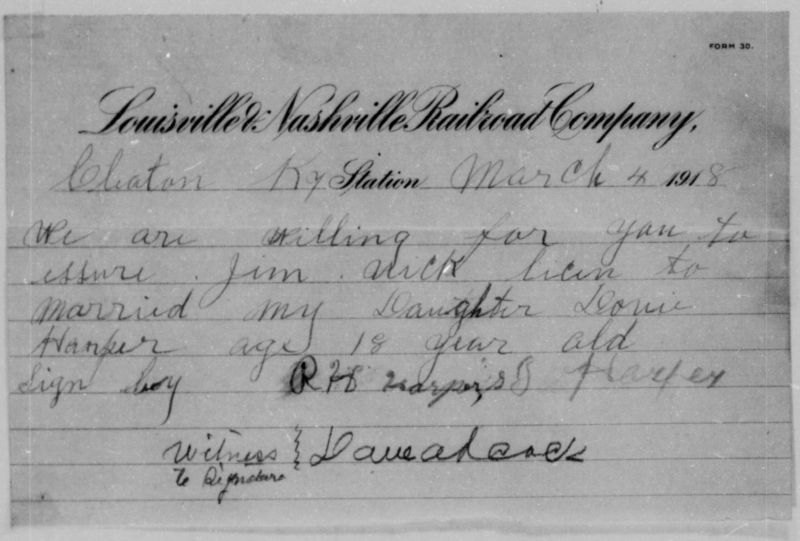 FORM 30.
Louisville & Nashville Railroad Company,
Cleaton Ky Station March 4 1918
We are willing for you to
issure. Jim. Vick licen to
married my Daughter Dovie
Harper age 18 year old
Sign by R H Harper, S B Harper
Witness } Dave adcock
to Signature